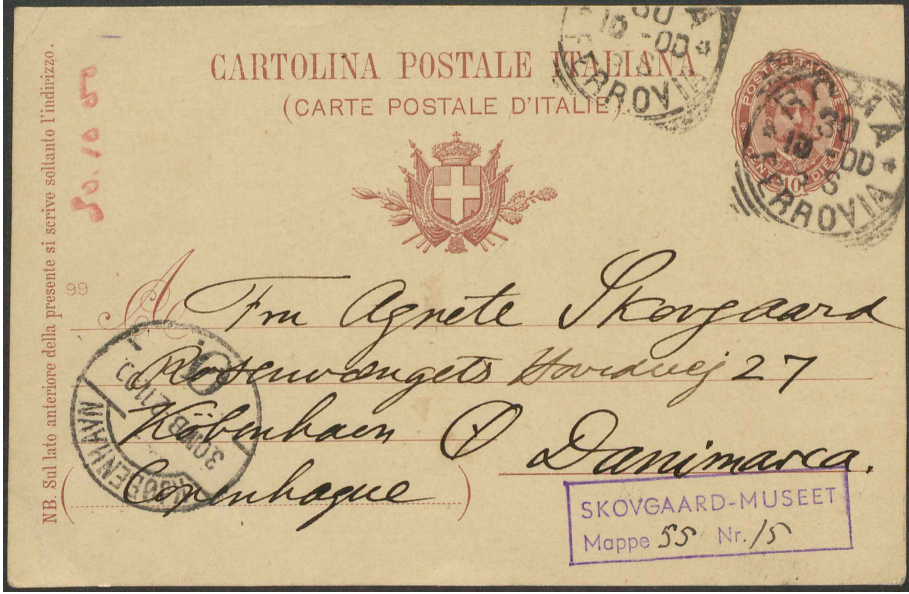 CARTOLINA POSTALE ITALIANA
(CARTE POSTALE D'ITALIE)
NB. Sul lato anteriore della presente si scrive soltanto l'indirizzo.
30.10 00
99
A
Fru Agnete Skovgaard
Rosenvængets Hovedvej 27
København Ø Danimarca.
(Copenhague)
SKOVGAARD-MUSEET
Mappe 55 Nr. 15
30 
10 - 00
8 S
FERROVIA
POSTE ITALIANE
10
30
10 - 00
8 S
FERROVIA
KJØBENHAVN
3.OMB
2.11.00